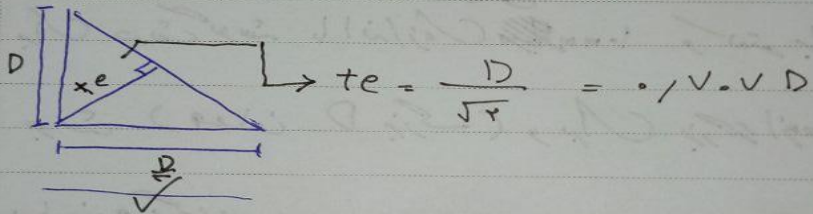 D
te
te = D / √۲ = ۰/۷۰۷ D
D